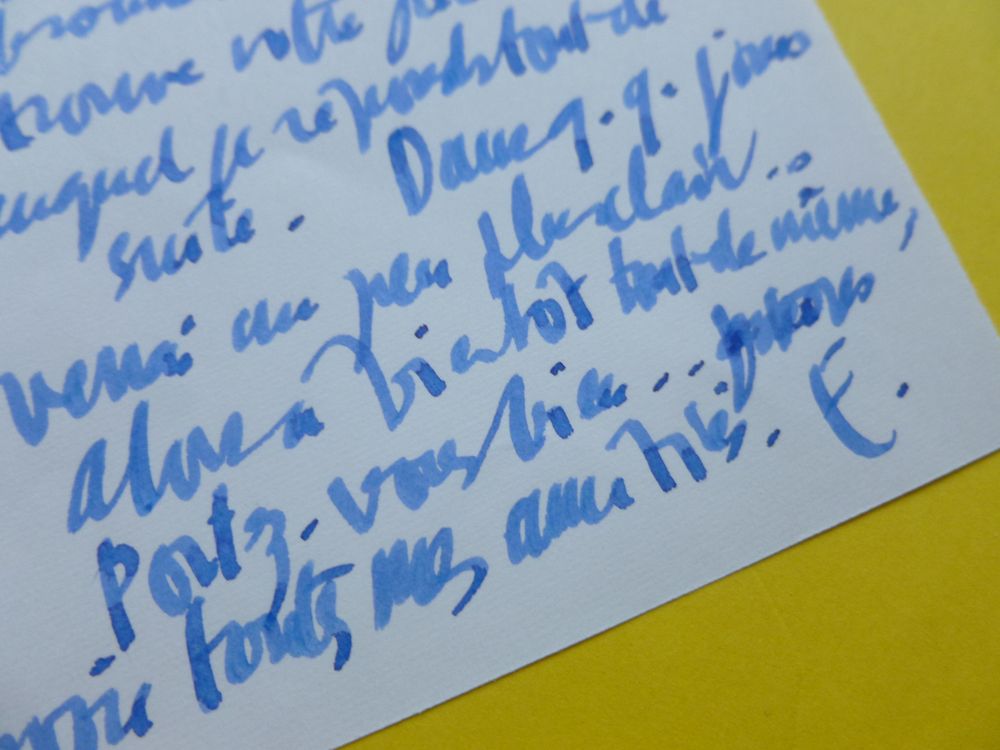 trouve votre
auquel je réponds tout de
suite. Dans q.q. jours
verrai un peu plus clair...
Alors à bientôt tout de même,
Portez-vous bien...
toutes mes amitiés. E.